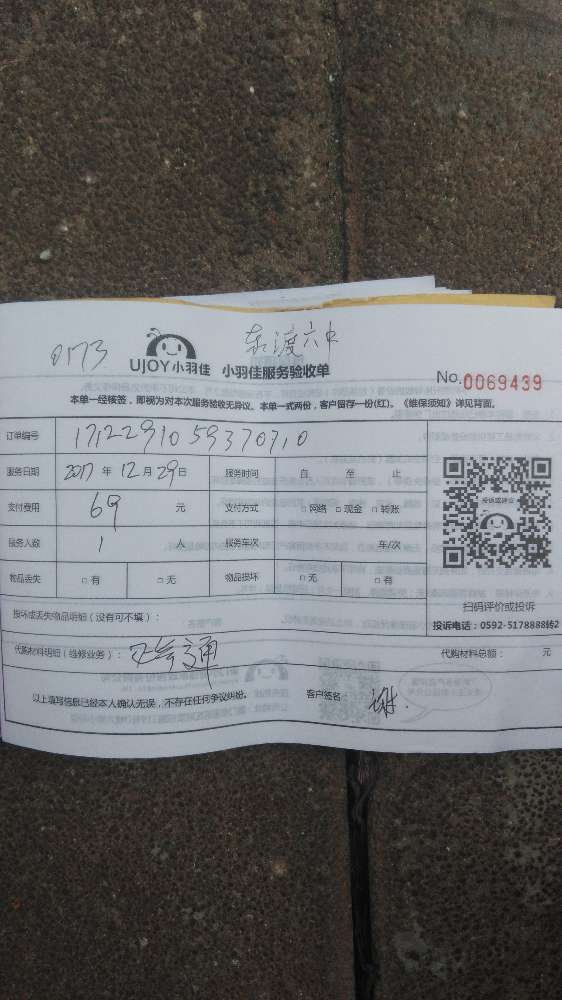 0173 东渡六中
UJOY小羽佳 小羽佳服务验收单
No.0069439
本单一经核签，即视为对本次服务验收无异议。本单一式两份，客户留存一份(红)。《维保须知》详见背面。
订单编号 171229105937010
服务日期 2017 年 12 月 29 日 服务时间 自 至 止
支付费用 69 元 支付方式 □ 网络 □ 现金 □ 转账
服务人数 1 人 服务车次 车/次
物品丢失 □ 有 □ 无 物品损坏 □ 无 □ 有
投诉或建议
扫码评价或投诉
投诉电话：0592-5178888转2
损坏或丢失物品明细（没有可不填）：
代购材料明细（维修业务）： 通 代购材料总额： 元
以上填写信息已经本人确认无误，不存在任何争议纠纷。 客户签名： 谢